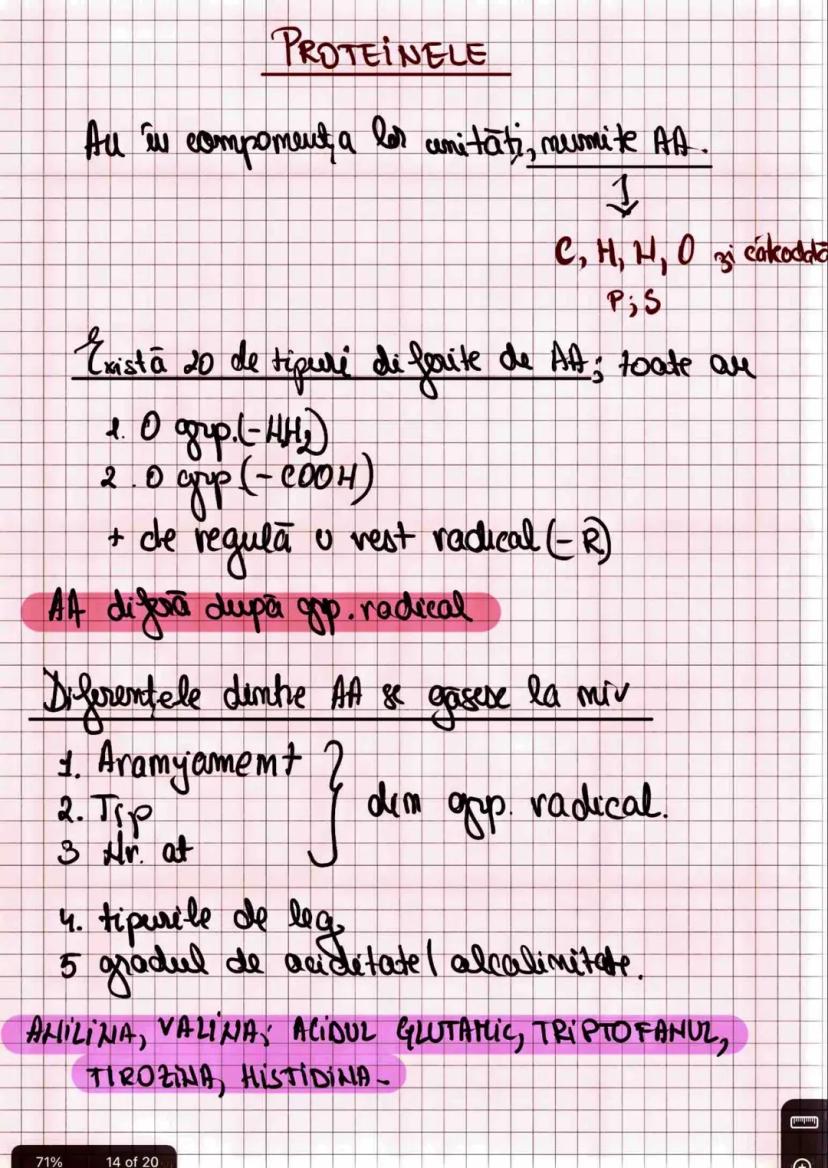 PROTEINELE
Au în componența lor unități, numite AA.
C, H, N, O și câteodată
P; S
Există 20 de tipuri diferite de AA; toate au
1. O grup.(-NH₂)
2. O grup (-COOH)
+ de regulă u rest radical (-R)
AA diferă după grp. radical
Diferențele dintre AA se găsesc la niv
1. Aranjament
2. Tip
3 Nr. at
din grp. radical.
4. tipurile de leg.
5 gradul de aciditate/ alcalinitate.
ANILINA, VALINA; ACIDUL GLUTAMIC, TRIPTOFANUL,
TIROZINA, HISTIDINA-
71% 14 of 20